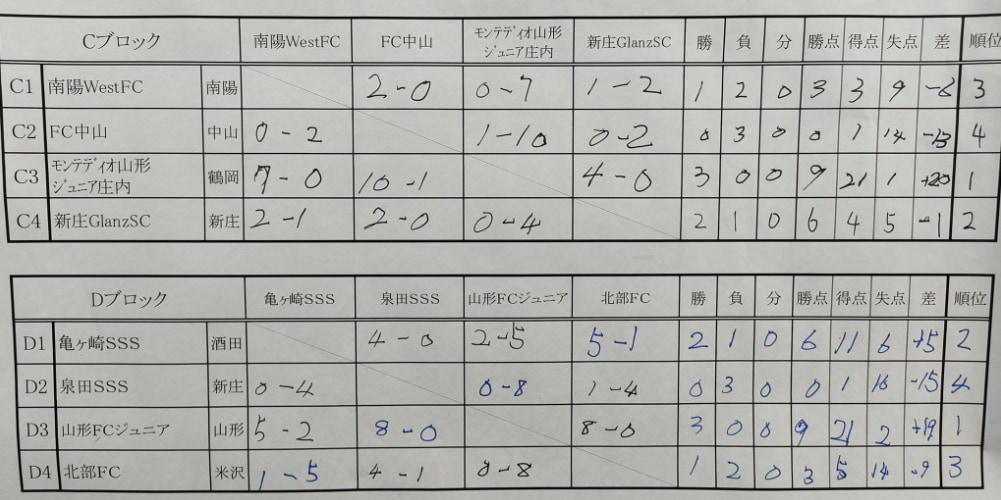 Cブロック 南陽WestFC FC中山 モンテディオ山形ジュニア庄内 新庄GlanzSC 勝 負 分 勝点 得点 失点 差 順位
C1 南陽WestFC 南陽 2-0 0-7 1-2 1 2 0 3 3 9 -6 3
C2 FC中山 中山 0-2 1-10 0-2 0 3 0 0 1 14 -13 4
C3 モンテディオ山形ジュニア庄内 鶴岡 7-0 10-1 4-0 3 0 0 9 21 1 +20 1
C4 新庄GlanzSC 新庄 2-1 2-0 0-4 2 1 0 6 4 5 -1 2
Dブロック 亀ヶ崎SSS 泉田SSS 山形FCジュニア 北部FC 勝 負 分 勝点 得点 失点 差 順位
D1 亀ヶ崎SSS 酒田 4-0 2-5 5-1 2 1 0 6 11 6 +5 2
D2 泉田SSS 新庄 0-4 0-8 1-4 0 3 0 0 1 16 -15 4
D3 山形FCジュニア 山形 5-2 8-0 8-0 3 0 0 9 21 2 +19 1
D4 北部FC 米沢 1-5 4-1 0-8 1 2 0 3 5 14 -9 3